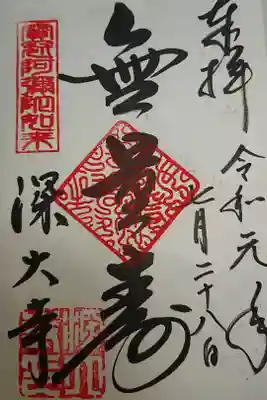 奉拝
令和元年
七月二十八日
無量寿
寳冠阿彌陀如来
深大寺